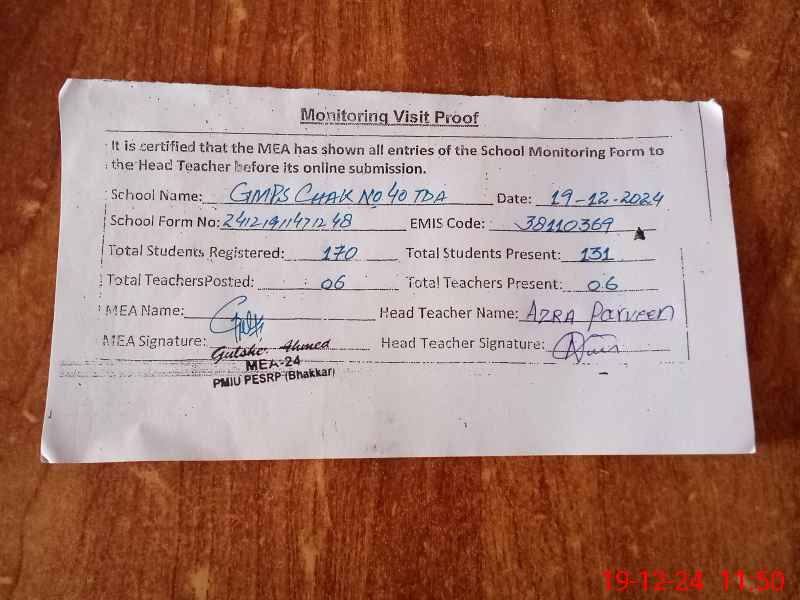 Monitoring Visit Proof
It is certified that the MEA has shown all entries of the School Monitoring Form to
the Head Teacher before its online submission.
School Name: GMPS CHAK NO 40 TDA Date: 19-12-2024
School Form No: 24121911471248 EMIS Code: 38110369
Total Students Registered: 170 Total Students Present: 131
Total TeachersPosted: 06 Total Teachers Present: 06
MEA Name: Head Teacher Name: AZRA Parveen
MEA Signature: Head Teacher Signature:
Gulsher Ahmed
MEA-24
PMIU PESRP (Bhakkar)
19-12-24 11:50